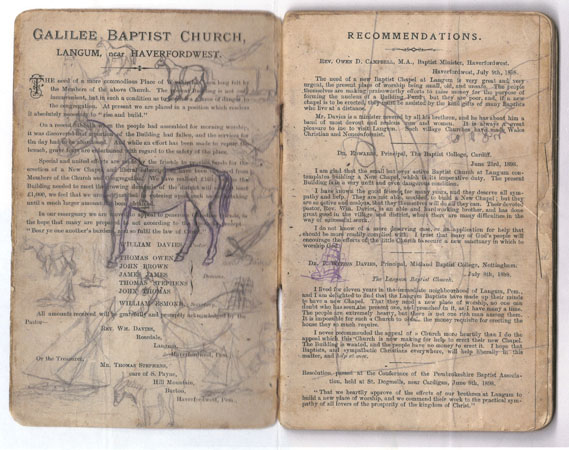 GALILEE BAPTIST CHURCH,
LANGUM, near HAVERFORDWEST.
THE need of a more commodious Place of Worship has long been felt by
the Members of the above Church. The present building is not only
inconvenient, but in such a condition as to be a source of danger to
the congregation. At present we are placed in a position which makes
it absolutely to "rise and build."
On a recent when the people had assembled for morning worship,
it was discovered that of the Building had fallen, and the services for
the day had to be abandoned. And while an effort has been made to repair the
breach, grave fears are entertained with regard to the safety of the place.
Special and united efforts are made by the friends to raise funds for the
erection of a New Chapel liberal have been from
Members of the Church and Congregation. the
Building needed to meet the growing demands of the district will
£1,000, we feel that we are
until a much larger amount
In our emergency we are to appeal to
the hope that many are prompted according to the
"Bear ye one another's burdens, and so fulfil the law of Christ."
WILLIAM DAVIES,
THOMAS OWEN
JOHN BROWN
JAMES JAMES
THOMAS STEPHENS
JOHN THOMAS
WILLIAM ESMOR
All amounts received will be gratefully and promptly acknowledged by the
Pastor—
REV. WM. DAVIES,
Rosedale,
Langum,
Haverfordwest, Pem.
Or the Treasurer,
MR. THOMAS STEPHENS,
care of S. Payne,
Hill Mountain,
Burton,
Haverfordwest, Pem.
RECOMMENDATIONS.
REV. OWEN D. CAMPBELL, M.A., Baptist Minister, Haverfordwest.
Haverfordwest, July 9th, 1898.
The need of a new Baptist Chapel at Langum is very great and very
urgent, the present place of worship being small, old, and unsafe. The people
themselves are making praiseworthy efforts to raise money for the purpose of
forming the nucleus of a Building Fund, but they are poor, and, if a new
chapel is to be erected, they must be assisted by the kind gifts of many Baptists
who live at a distance.
Mr. Davies is a minister revered by all his brethren, and he has ahead him a
band of most devout and zealous men and women. It is always a great
pleasure to me to visit Langum. Such village Churches have made Wales
Christian and Nonconformist.
DR. EDWARDS, Principal, The Baptist College, Cardiff.
June 23rd, 1898.
I am glad that the small but very active Baptist Church at Langum con-
templates building a New Chapel, which is its imperative duty. The present
Building is in a very unfit and even dangerous condition.
I have known the good friends for many years, and they deserve all sym-
pathy and help. They are not able, unaided, to build a New Chapel; but they
are so active and zealous, that they themselves will do all they can. Their devoted
pastor, Rev. Wm. Davies, is an able and hard-working brother, and has done
great good in the village and district, where there are many difficulties in the
way of successful work.
I do not know of a more deserving case, or an application for help that
should be more readily complied with. I trust that many of God's people will
encourage the efforts of the little Church to secure a new sanctuary in which to
worship God.
DR. DAVIES, Principal, Midland Baptist College, Nottingham.
July 8th, 1898.
The Langum Baptist Church.
I lived for eleven years in the immediate neighbourhood of Langum, Pem.,
and I am delighted to find that the Langum Baptists have made up their minds
to have a new Chapel. That they need a new place of worship, no one can
doubt who has seen the present one, and preached in it, as I have many a time.
The people are extremely hearty, but there is not one rich man among them.
It is impossible for such a Church to obtain the money requisite for erecting the
house they so much require.
I never recommended the appeal of a Church more heartily than I do the
appeal which this Church is now making for help to erect their new Chapel.
The Building is wanted, and the people have no money to erect it. I hope that
Baptists, and sympathetic Christians everywhere, will help liberally in this
matter, and help at once.
Resolution passed at the Conference of the Pembrokeshire Baptist Associa-
tion, held at St. Dogmells, near Cardigan, June 8th, 1898.
"That we heartily approve of the efforts of our brethren at Langum to
build a new place of worship, and we commend their work to the practical sym-
pathy of all lovers of the prosperity of the kingdom of Christ."